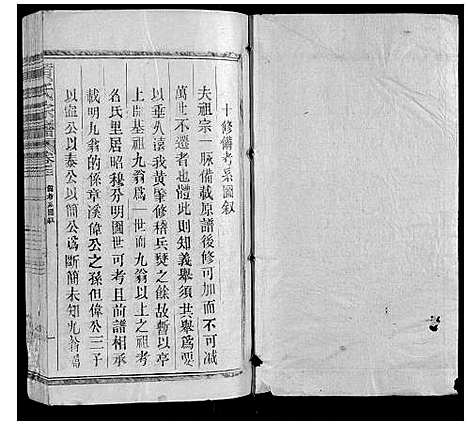 十修備考系圖敘
夫祖宗一脉備載原譜後修可加而不可减
萬世不遷者也體此則知義舉須共舉為要
以垂久遠我黃肇修稽兵燹之餘故暫以亭
上開基祖九翁為一世而九翁以上之祖考
名氏里居昭穆分明圖世可考且前譜相承
載明九翁的係章溪偉公之孫但偉公三子
以寍公以泰公以簡公為斷簡未知九翁
黃氏宗譜 卷
備考系圖敘